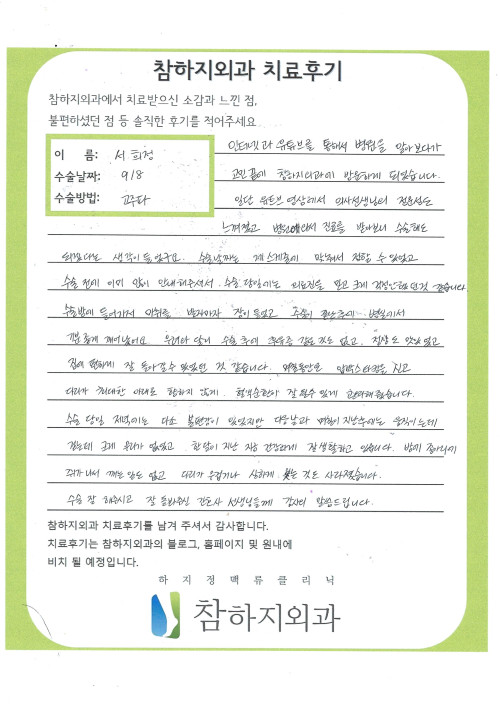 참하지외과 치료후기
참하지외과에서 치료받으신 소감과 느낀 점,
불편하셨던 점 등 솔직한 후기를 적어주세요
이 름: 서희정
수술날짜: 9/8
수술방법: 고주파
인터넷과 유튜브를 통해서 병원을 알아보다가
고민끝에 참하지외과에 방문하게 되었습니다.
일단 유튜브 영상에서 의사선생님의 전문성도
느껴졌고 병원에와서 진료를 받아보니 수술해도
되겠다는 생각이 들었구요. 수술날짜는 제 스케줄에 맞춰서 정할 수 있었고
수술 전에 이미 많이 안내해주셔서 수술 당일에는 의료진을 믿고 크게 걱정안했던것 같습니다
수술방에 들어가서 마취를 받자마자 잠이 들었고 수술이 끝난후에 병실에서
깨어났어요. 우려와 달리 수술 후에 통증 같은 것도 없고,
집에 편하게 잘 돌아갈 수 있었던 것 같습니다. 압박스타킹을 신고
다리가 최대한 아래로 향하지 않게, 혈액순환이 잘 될수 있게 했습니다.
수술 당일 저녁에는 다소 불편감이 있었지만 다음날과 며칠이 지난후에는 움직이는데
걷는데 크게 무리가 없었고 한달이 지난 지금 건강하게 잘 생활하고 있습니다. 밤에 종아리에
쥐가 나서 깨는 일도 없고 다리가 무겁거나 심하게 붓는 것도 사라졌습니다.
수술 잘 해주시고 잘 돌봐주신 간호사 선생님들께 감사의 말씀드립니다.
참하지외과 치료후기를 남겨 주셔서 감사합니다.
치료후기는 참하지외과의 블로그, 홈페이지 및 원내에
비치 될 예정입니다.
하지정맥류클리닉
참하지외과